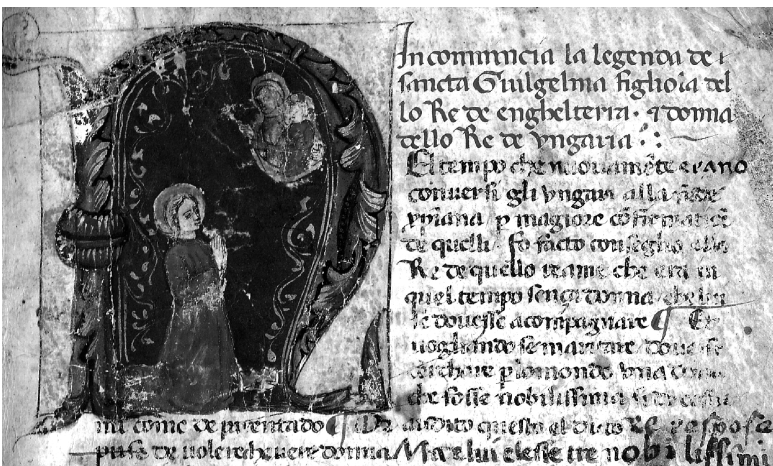 In comintcia la legenda de
sancta Guilgelma figliola del
lo Re de enghelterra · ⁊ donna
dello Re de Vngaria
El tempo che nuouamēte erano
conuersi gli vngari alla fede
xp̄iana p magiore cōfirmatiōe
de quelli · fo facto conseglio allo
Re de quello reame che era in
quel tempo senza donna che lui
se douesse acompagnare ¶ Et
uogliando se maritare douesse
cerchare p lo mondo vna
che fosse nobilissima
come de parentado ¶ audito questo el dicto re resposa
de uolere donna Ma de lui elesse tre nobilissimi